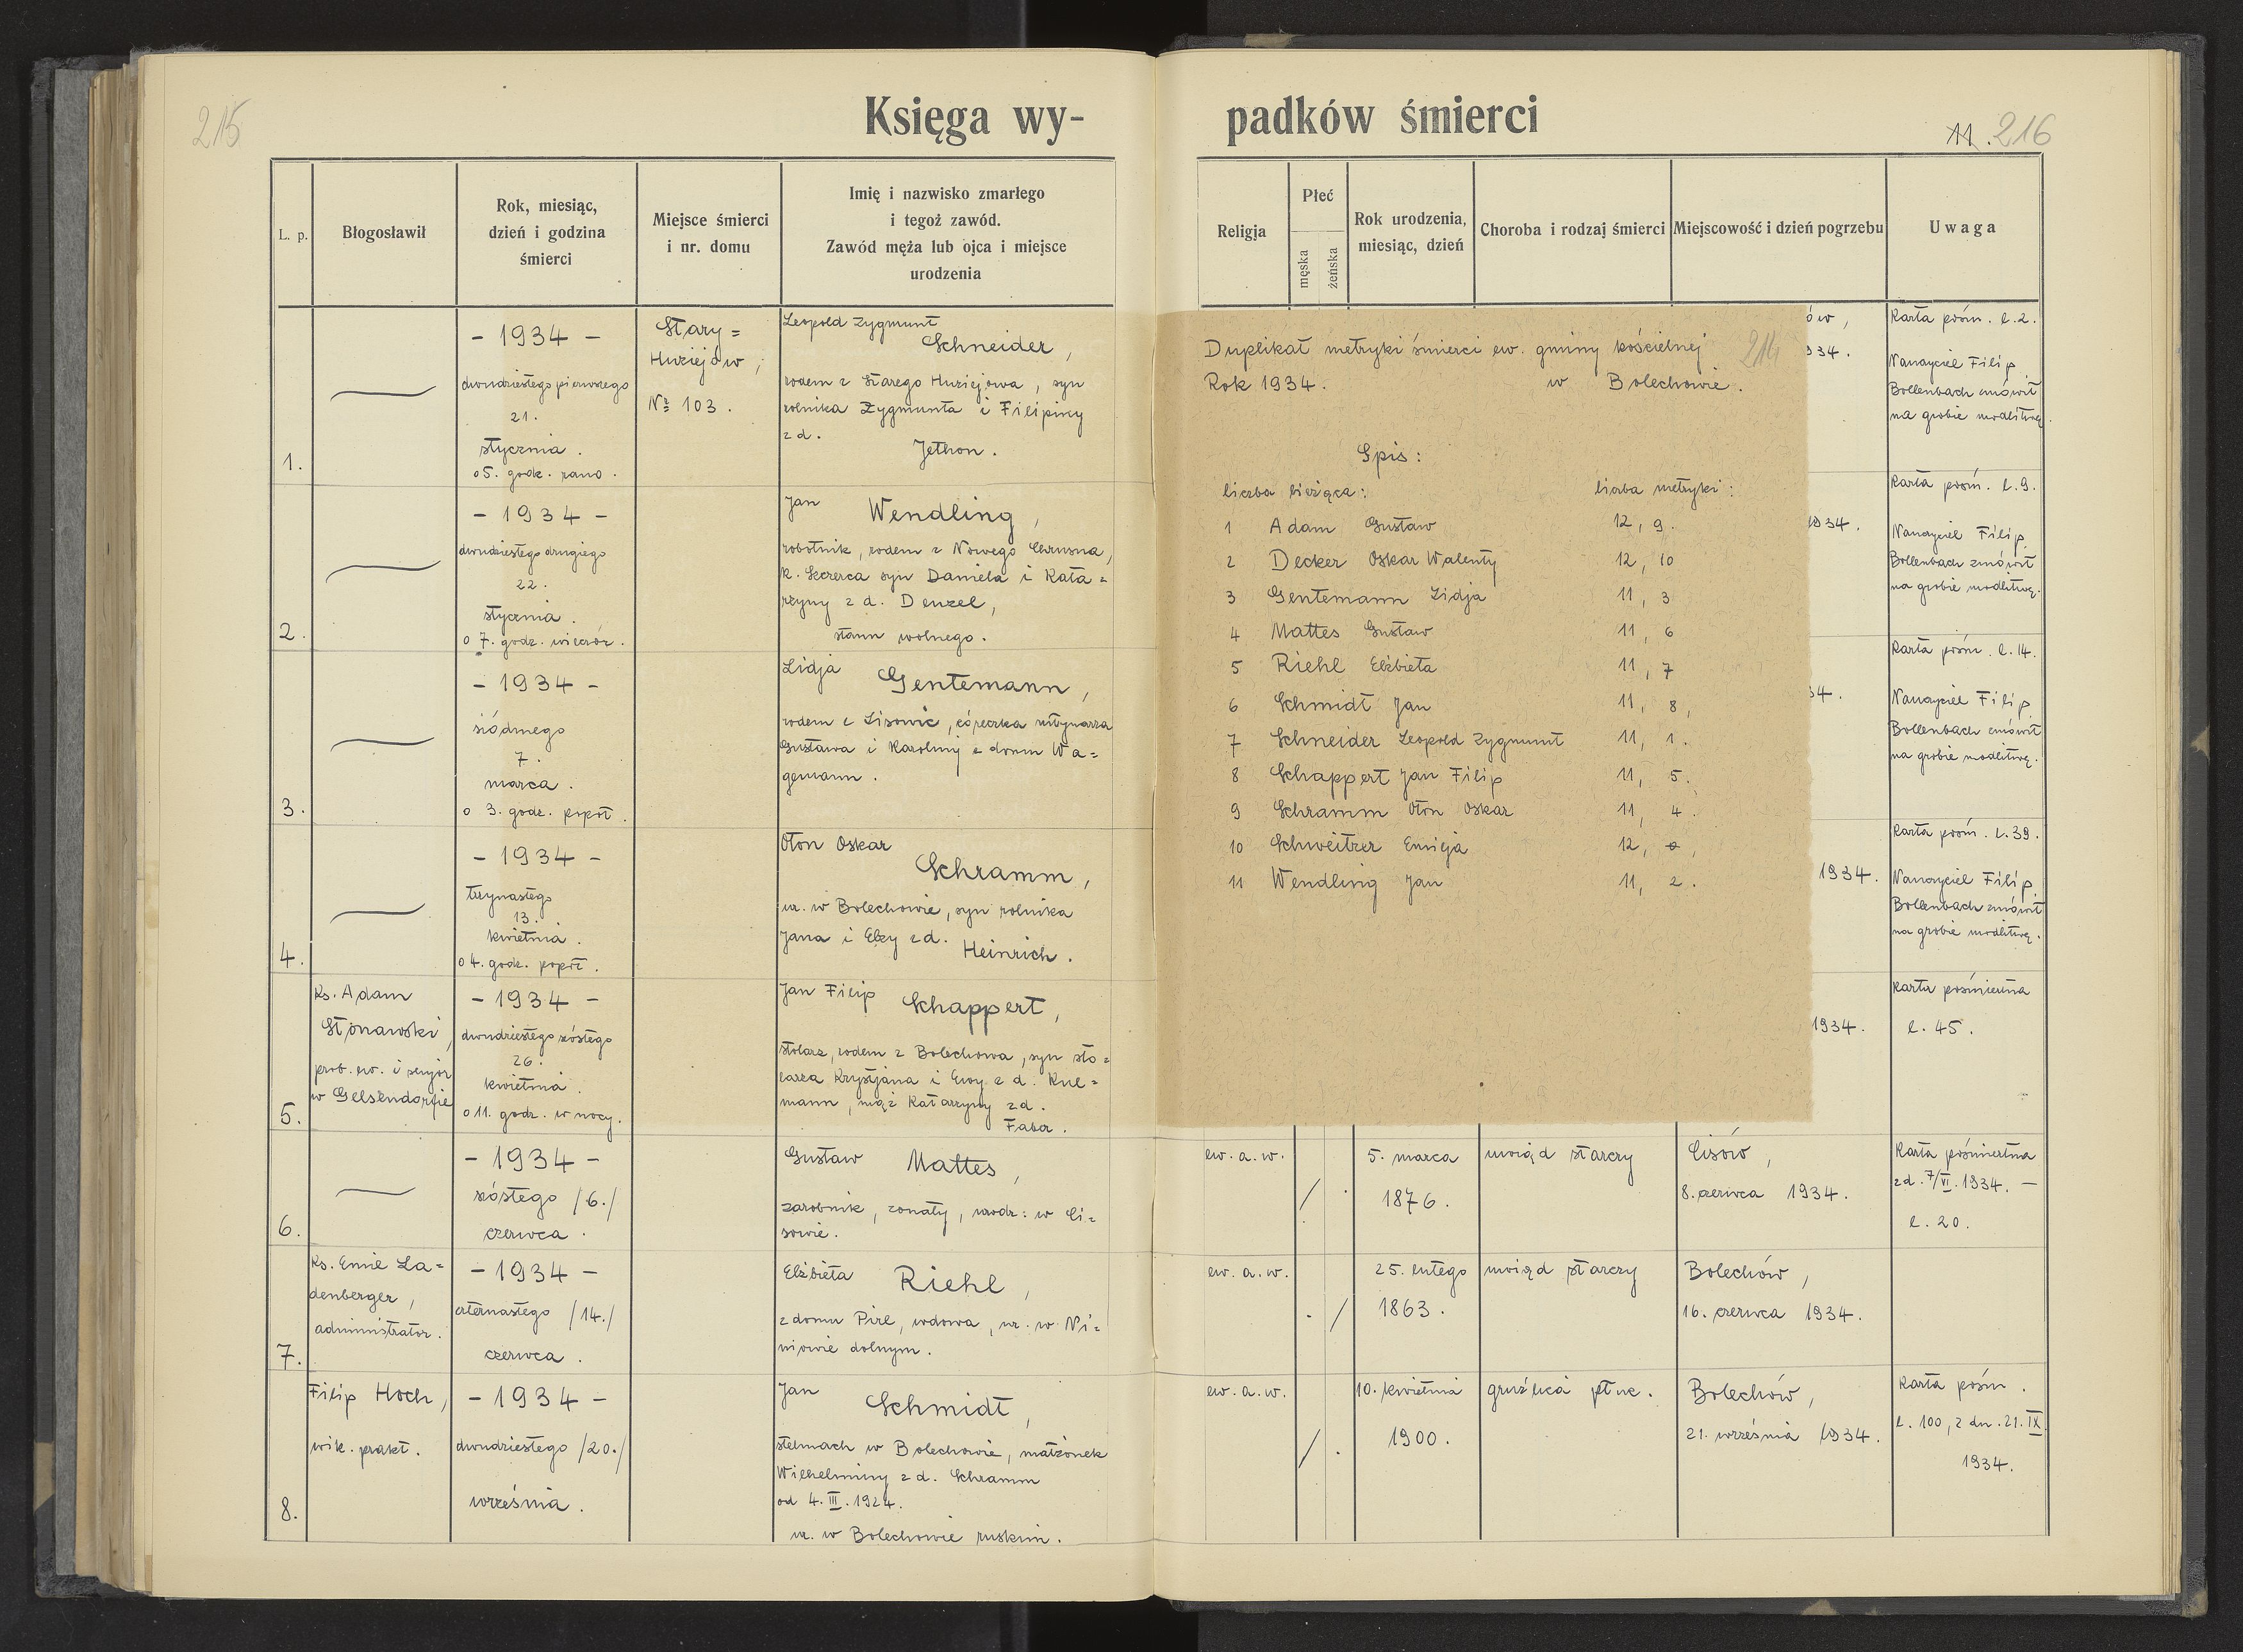 215
Księga wy-
padków śmierci
11. 216
L. p.
Błogosławił
Rok, miesiąc,
dzień i godzina
śmierci
Miejsce śmierci
i nr. domu
Imię i nazwisko zmarłego
i tegoż zawód.
Zawód męża lub ojca i miejsce
urodzenia
Religja
Płeć
męska
żeńska
Rok urodzenia,
miesiąc, dzień
Choroba i rodzaj śmierci
Miejscowość i dzień pogrzebu
Uwaga
1.
- 1934 -
dwudziestego pierwszego
21.
stycznia.
o 5. godz. rano.
Stary=
Huziejów,
№ 103.
Leopold Zygmunt
Schneider,
rodem z Starego Huziejowa, syn
rolnika Zygmunta i Filipiny
z d.
Jethon.
ów,
934.
Karta pośm. l. 2.
Nauczyciel Filip
Bollenbach zmówił
na grobie modlitwę.
2.
- 1934 -
dwudziestego drugiego
22.
stycznia.
o 7. godz. wieczór.
Jan Wendling,
robotnik, rodem z Nowego Chrusna,
k. Szczerca syn Daniela i Kata=
rzyny z d. Denzel,
stanu wolnego.
1934.
Karta pośm. l. 9.
Nauczyciel Filip
Bollenbach zmówił
na grobie modlitwę.
3.
- 1934 -
siódmego
7.
marca.
o 3. godz. popoł.
Lidja
Gentemann,
rodem z Lisowic, córeczka młynarza
Gustawa i Karoliny z domu Wa=
gemann.
34.
Karta pośm. l. 14.
Nauczyciel Filip
Bollenbach zmówił
na grobie modlitwę.
4.
- 1934 -
trzynastego
13.
kwietnia.
o 4. godz. popoł.
Oton Oskar
Schramm,
ur. w Bolechowie, syn rolnika
Jana i Elzy z d. Heinrich.
1934.
Karta pośm. l. 39.
Nauczyciel Filip
Bollenbach zmówił
na grobie modlitwę.
5.
Ks. Adam
Stonawski,
prob. ew. i senjor
w Gelsendorfie
- 1934 -
dwudziestego szóstego
26.
kwietnia.
o 11. godz. w nocy.
Jan Filip Schappert,
stolarz, rodem z Bolechowa, syn sto=
larza Krystjana i Ewy z d. Kul=
mann, mąż Katarzyny z d.
Faber.
1934.
Karta pośmiertna
l. 45.
Duplikat metryki śmierci ew. gminy kościelnej
214
Rok 1934. w Bolechowie.
Spis:
liczba bieżąca: liczba metryki:
1 Adam Gustaw 12, 9.
2 Decker Oskar Walenty 12, 10
3 Gentemann Lidja 11, 3
4 Mattes Gustaw 11, 6
5 Riehl Elżbieta 11, 7
6 Schmidt Jan 11, 8,
7 Schneider Leopold Zygmunt 11, 1.
8 Schappert Jan Filip 11, 5.
9 Schramm Oton Oskar 11, 4.
10 Schweitzer Emilja 12,
11 Wendling Jan 11, 2.
6.
- 1934 -
szóstego /6./
czerwca.
Gustaw Mattes,
zarobnik, żonaty, urodz: w Ci=
sowie.
ew. a. w.
5. marca
1876.
uwiąd starczy
Cisów,
8. czerwca 1934.
Karta pośmiertna
z d. 7/VI. 1934. -
l. 20.
7.
Ks. Emil La=
denberger,
administrator.
- 1934 -
czternastego /14./
czerwca.
Elżbieta Riehl,
z domu Pirl, wdowa, ur. w Ni=
niowie dolnym.
ew. a. w.
25. lutego
1863.
uwiąd starczy
Bolechów,
16. czerwca 1934.
8.
Filip Hoch,
wik. prakt.
- 1934 -
dwudziestego /20./
września.
Jan
Schmidt,
stelmach w Bolechowie, małżonek
Wilhelminy z d. Schramm
od 4. III. 1924.
ur. w Bolechowie ruskim.
ew. a. w.
10. kwietnia
1900.
gruźlica płuc.
Bolechów,
21. września 1934.
Karta pośm.
l. 100, z dn. 21. IX
1934.